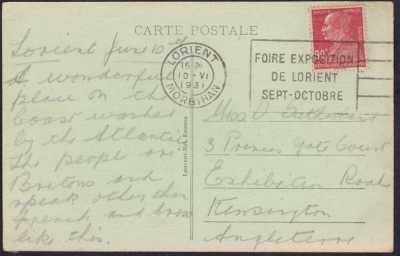 CARTE POSTALE
Lorient June 10
A wonderful
place on the
Coast washed
by the Atlantic
The people are
Bretons and
speak other than
French and brew
like this.
LORIENT
16 H
10 - VI
1931
MORBIHAN
FOIRE EXPOSITION
DE LORIENT
SEPT-OCTOBRE
Miss O.
3 Princes Gate Court
Exhibition Road
Kensington
Angleterre